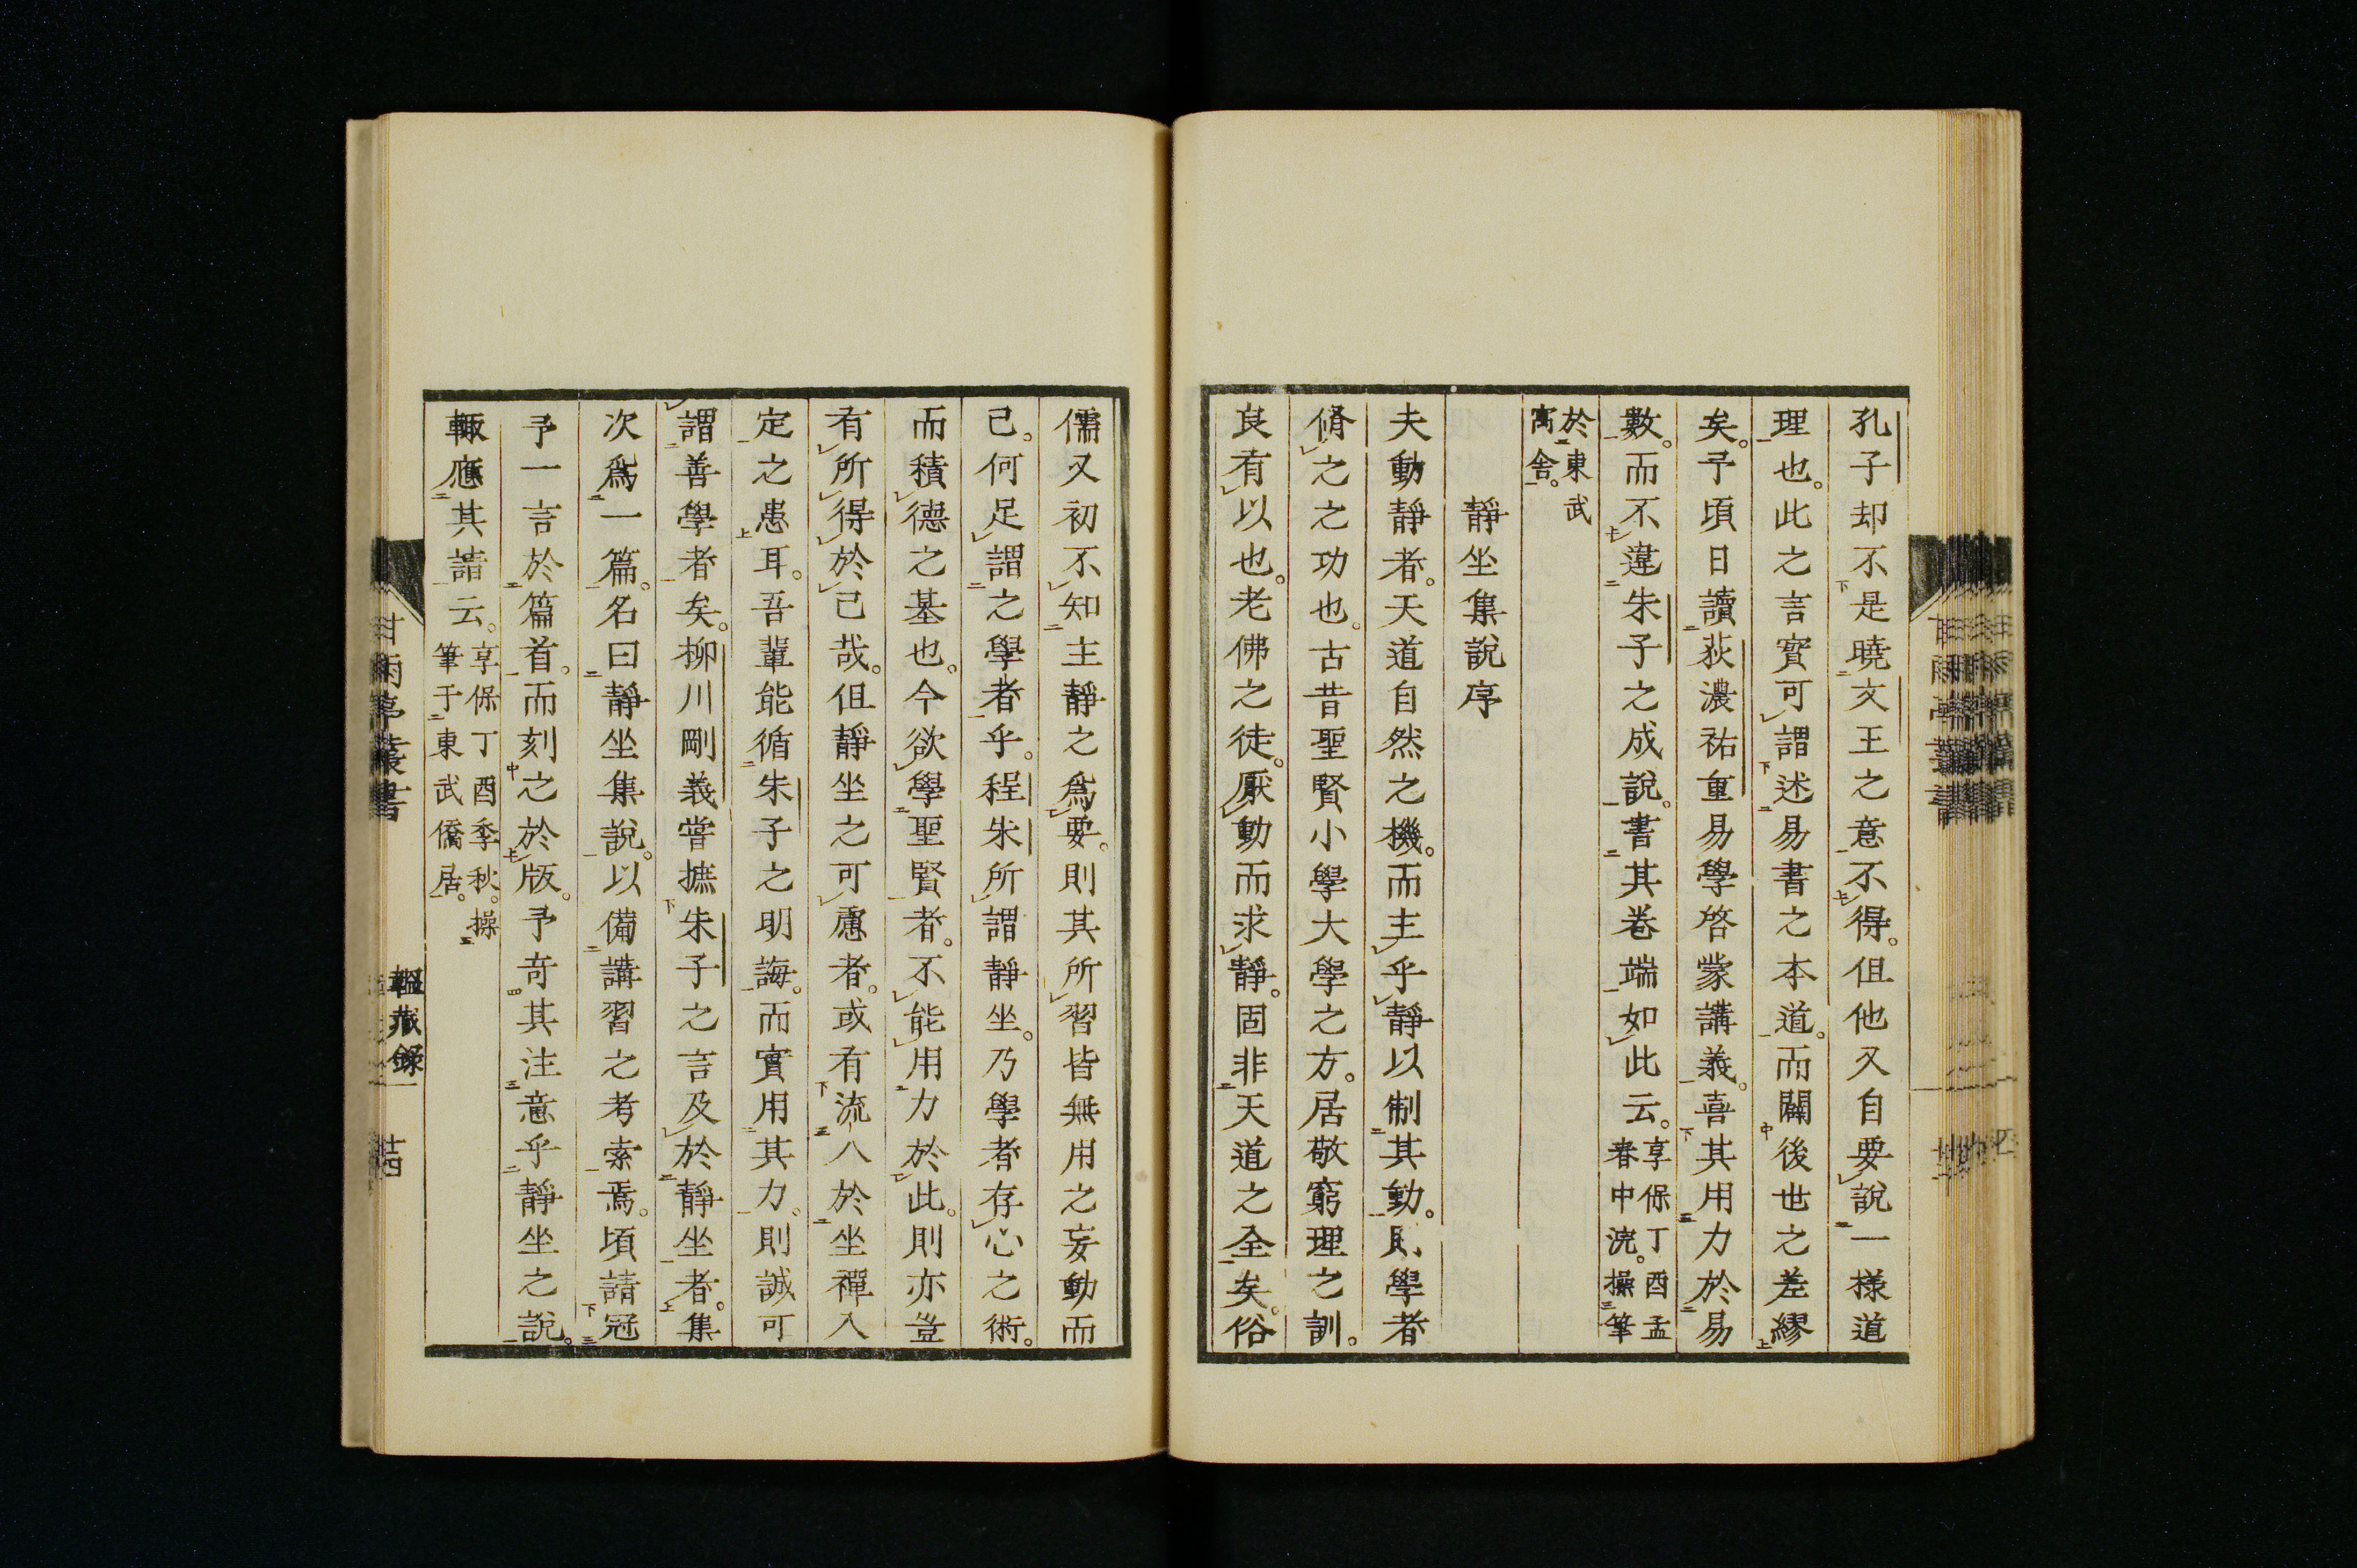 孔子却不是曉文王之意不得。但他又自要說一樣道
理也。此之言實可謂述易書之本道。而闢後世之差繆
矣。予頃日讀荻濃祐重易學啓蒙講義。喜其用力於易
數。而不違朱子之成說。書其卷端如此云。享保丁酉孟春中浣。操筆
於東武寓舍。
靜坐集說序
夫動靜者。天道自然之機。而主乎靜以制其動。則學者
脩之之功也。古昔聖賢小學大學之方。居敬窮理之訓。
良有以也。老佛之徒。厭動而求靜。固非天道之全矣。俗
儒又初不知主靜之爲要。則其所習皆無用之妄動而
己。何足謂之學者乎。程朱所謂靜坐。乃學者存心之術。
而積德之基也。今欲學聖賢者。不能用力於此。則亦豈
有所得於己哉。但靜坐之可慮者。或有流入於坐禪入
定之患耳。吾輩能循朱子之明誨。而實用其力。則誠可
謂善學者矣。柳川剛義嘗摭朱子之言及於靜坐者。集
次爲一篇。名曰靜坐集說。以備講習之考索焉。頃請冠
予一言於篇首。而刻之於版。予奇其注意乎靜坐之說。
輙應其請云。享保丁酉季秋。操筆于東武僑居。
甘雨亭叢書
韞藏錄